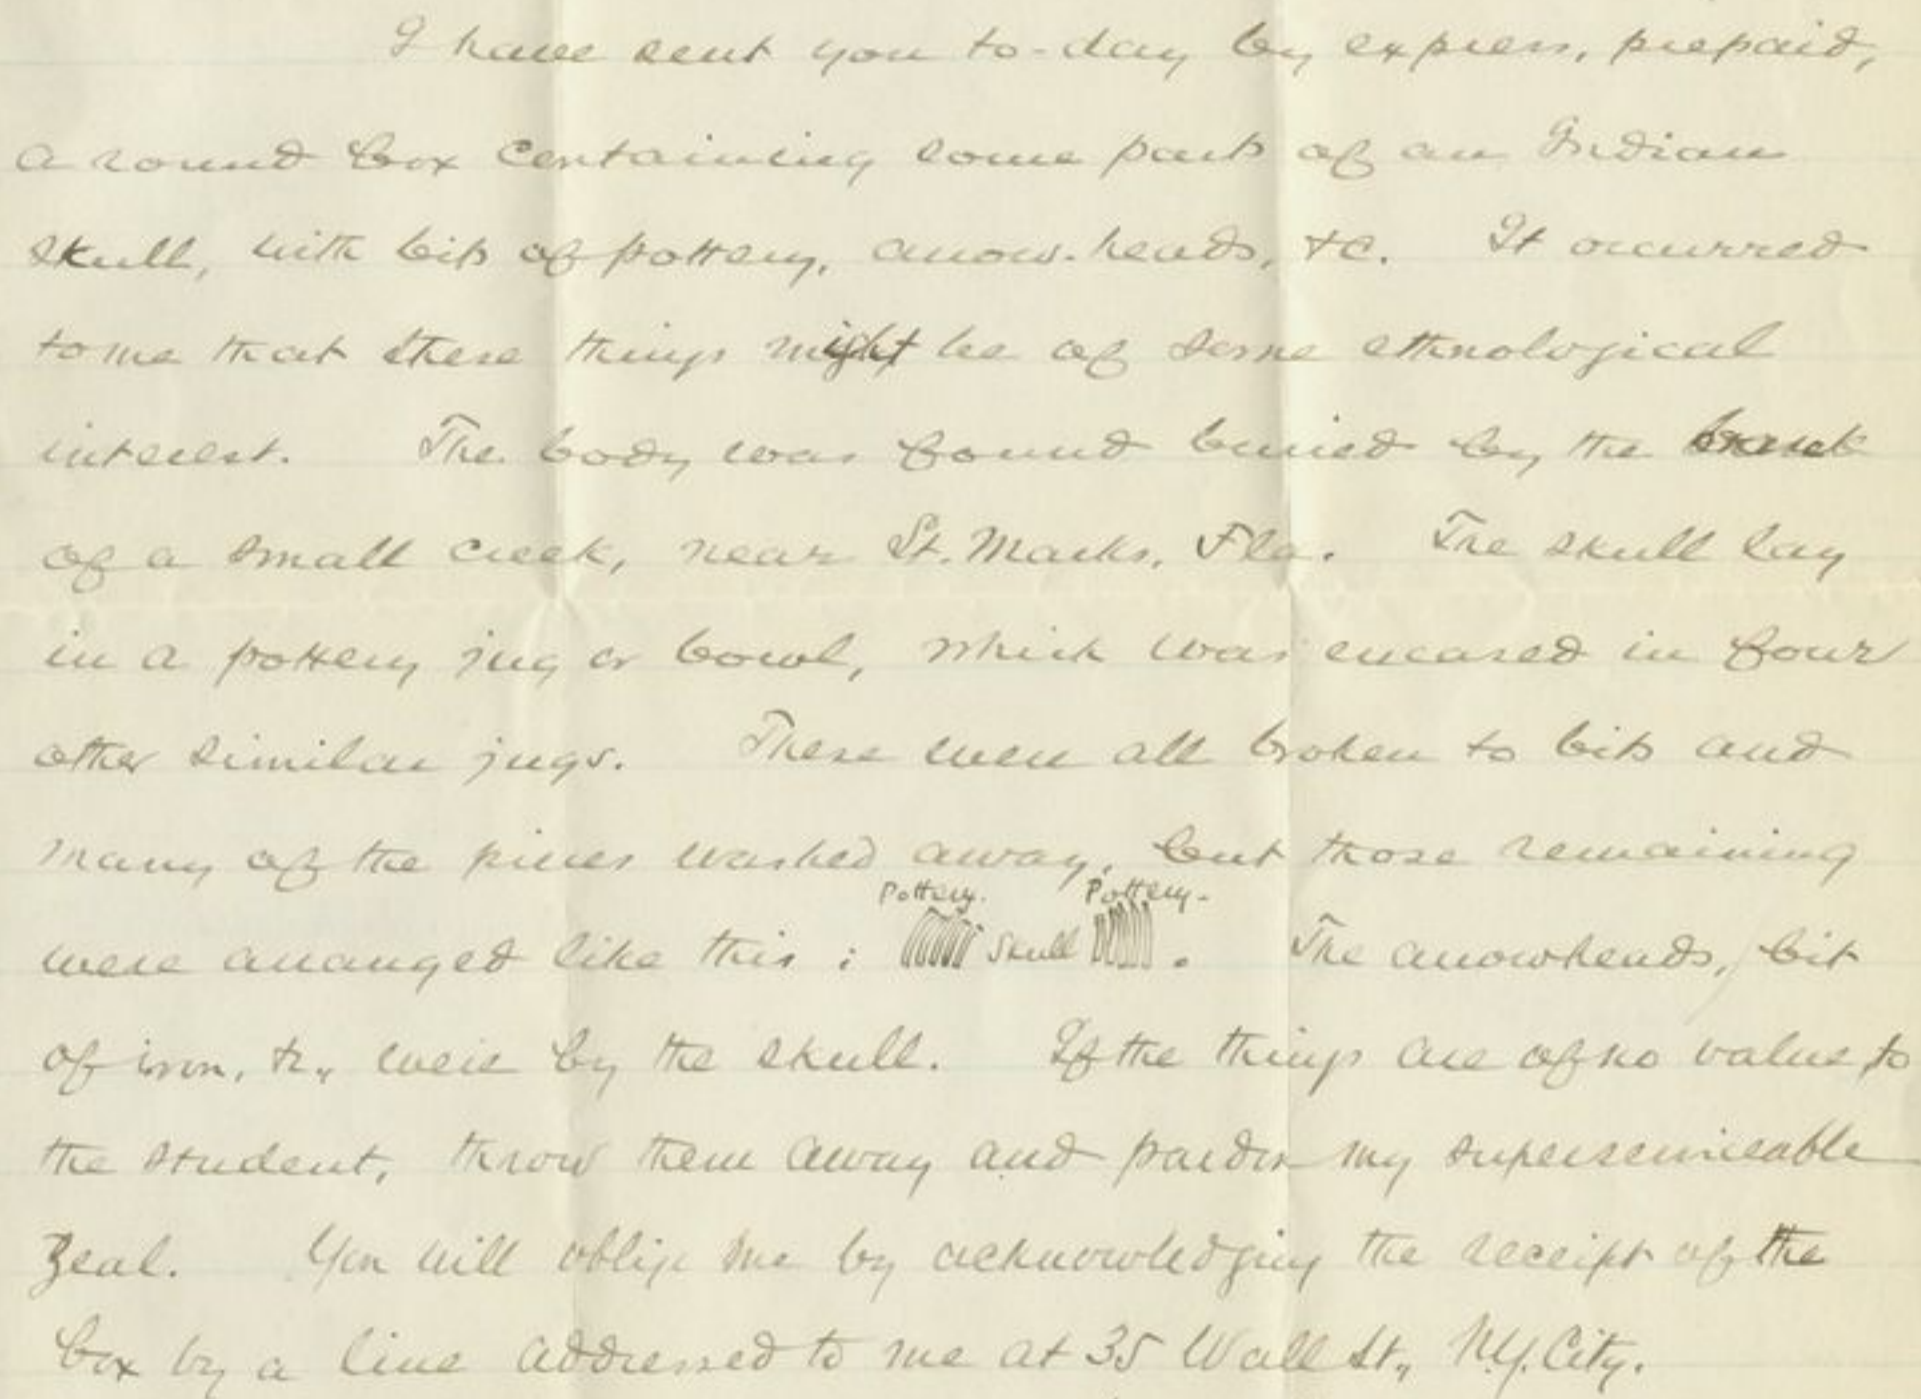 I have sent you to-day by express, prepaid,
a round box containing some parts of an Indian
skull, with bits of pottery, arrow-heads, &c. It occurred
to me that these things might be of some ethnological
interest. The body was found buried by the bank
of a small creek, near St. Marks, Fla. The skull lay
in a pottery jug or bowl, which was encased in four
other similar jugs. These were all broken to bits and
many of the pieces washed away, but those remaining
Pottery. Pottery.
were arranged like this: Skull . The arrowheads, bit
of iron, &c., were by the skull. If the things are of no value to
the student, throw them away and pardon my superserviceable
zeal. You will oblige me by acknowledging the receipt of the
box by a line addressed to me at 35 Wall St., N.Y. City.